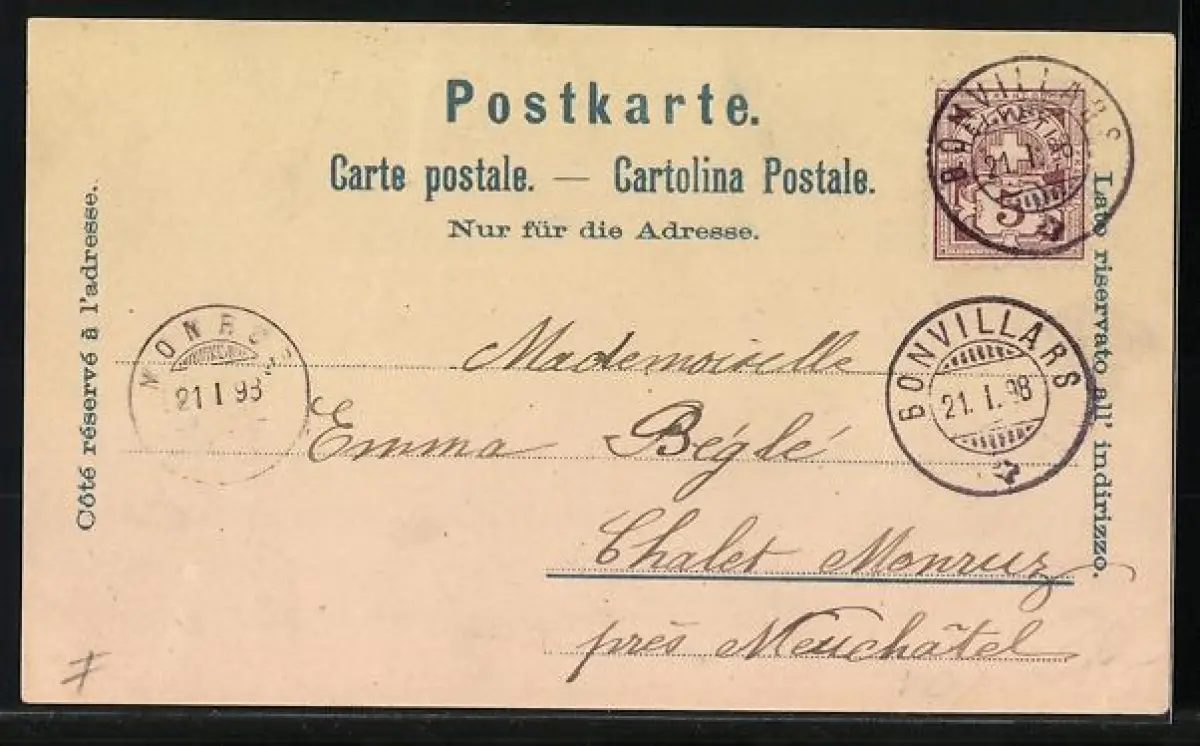 Postkarte.
Carte postale. — Cartolina Postale.
Nur für die Adresse.
Côté réservé à l'adresse.
Lato riservato all' indirizzo.
BONVILLARS
HELVETIA
21. I.
5
BONVILLARS
21. I. 98
21 I 98
Mademoiselle
Emma Béglé
Chalet Monruz
près Neuchâtel